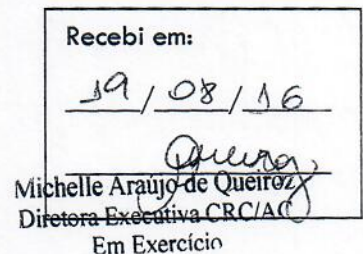 Recebi em:
19/08/16
Queiroz
Michelle Araújo de Queiroz
Diretora Executiva CRC/AC
Em Exercício